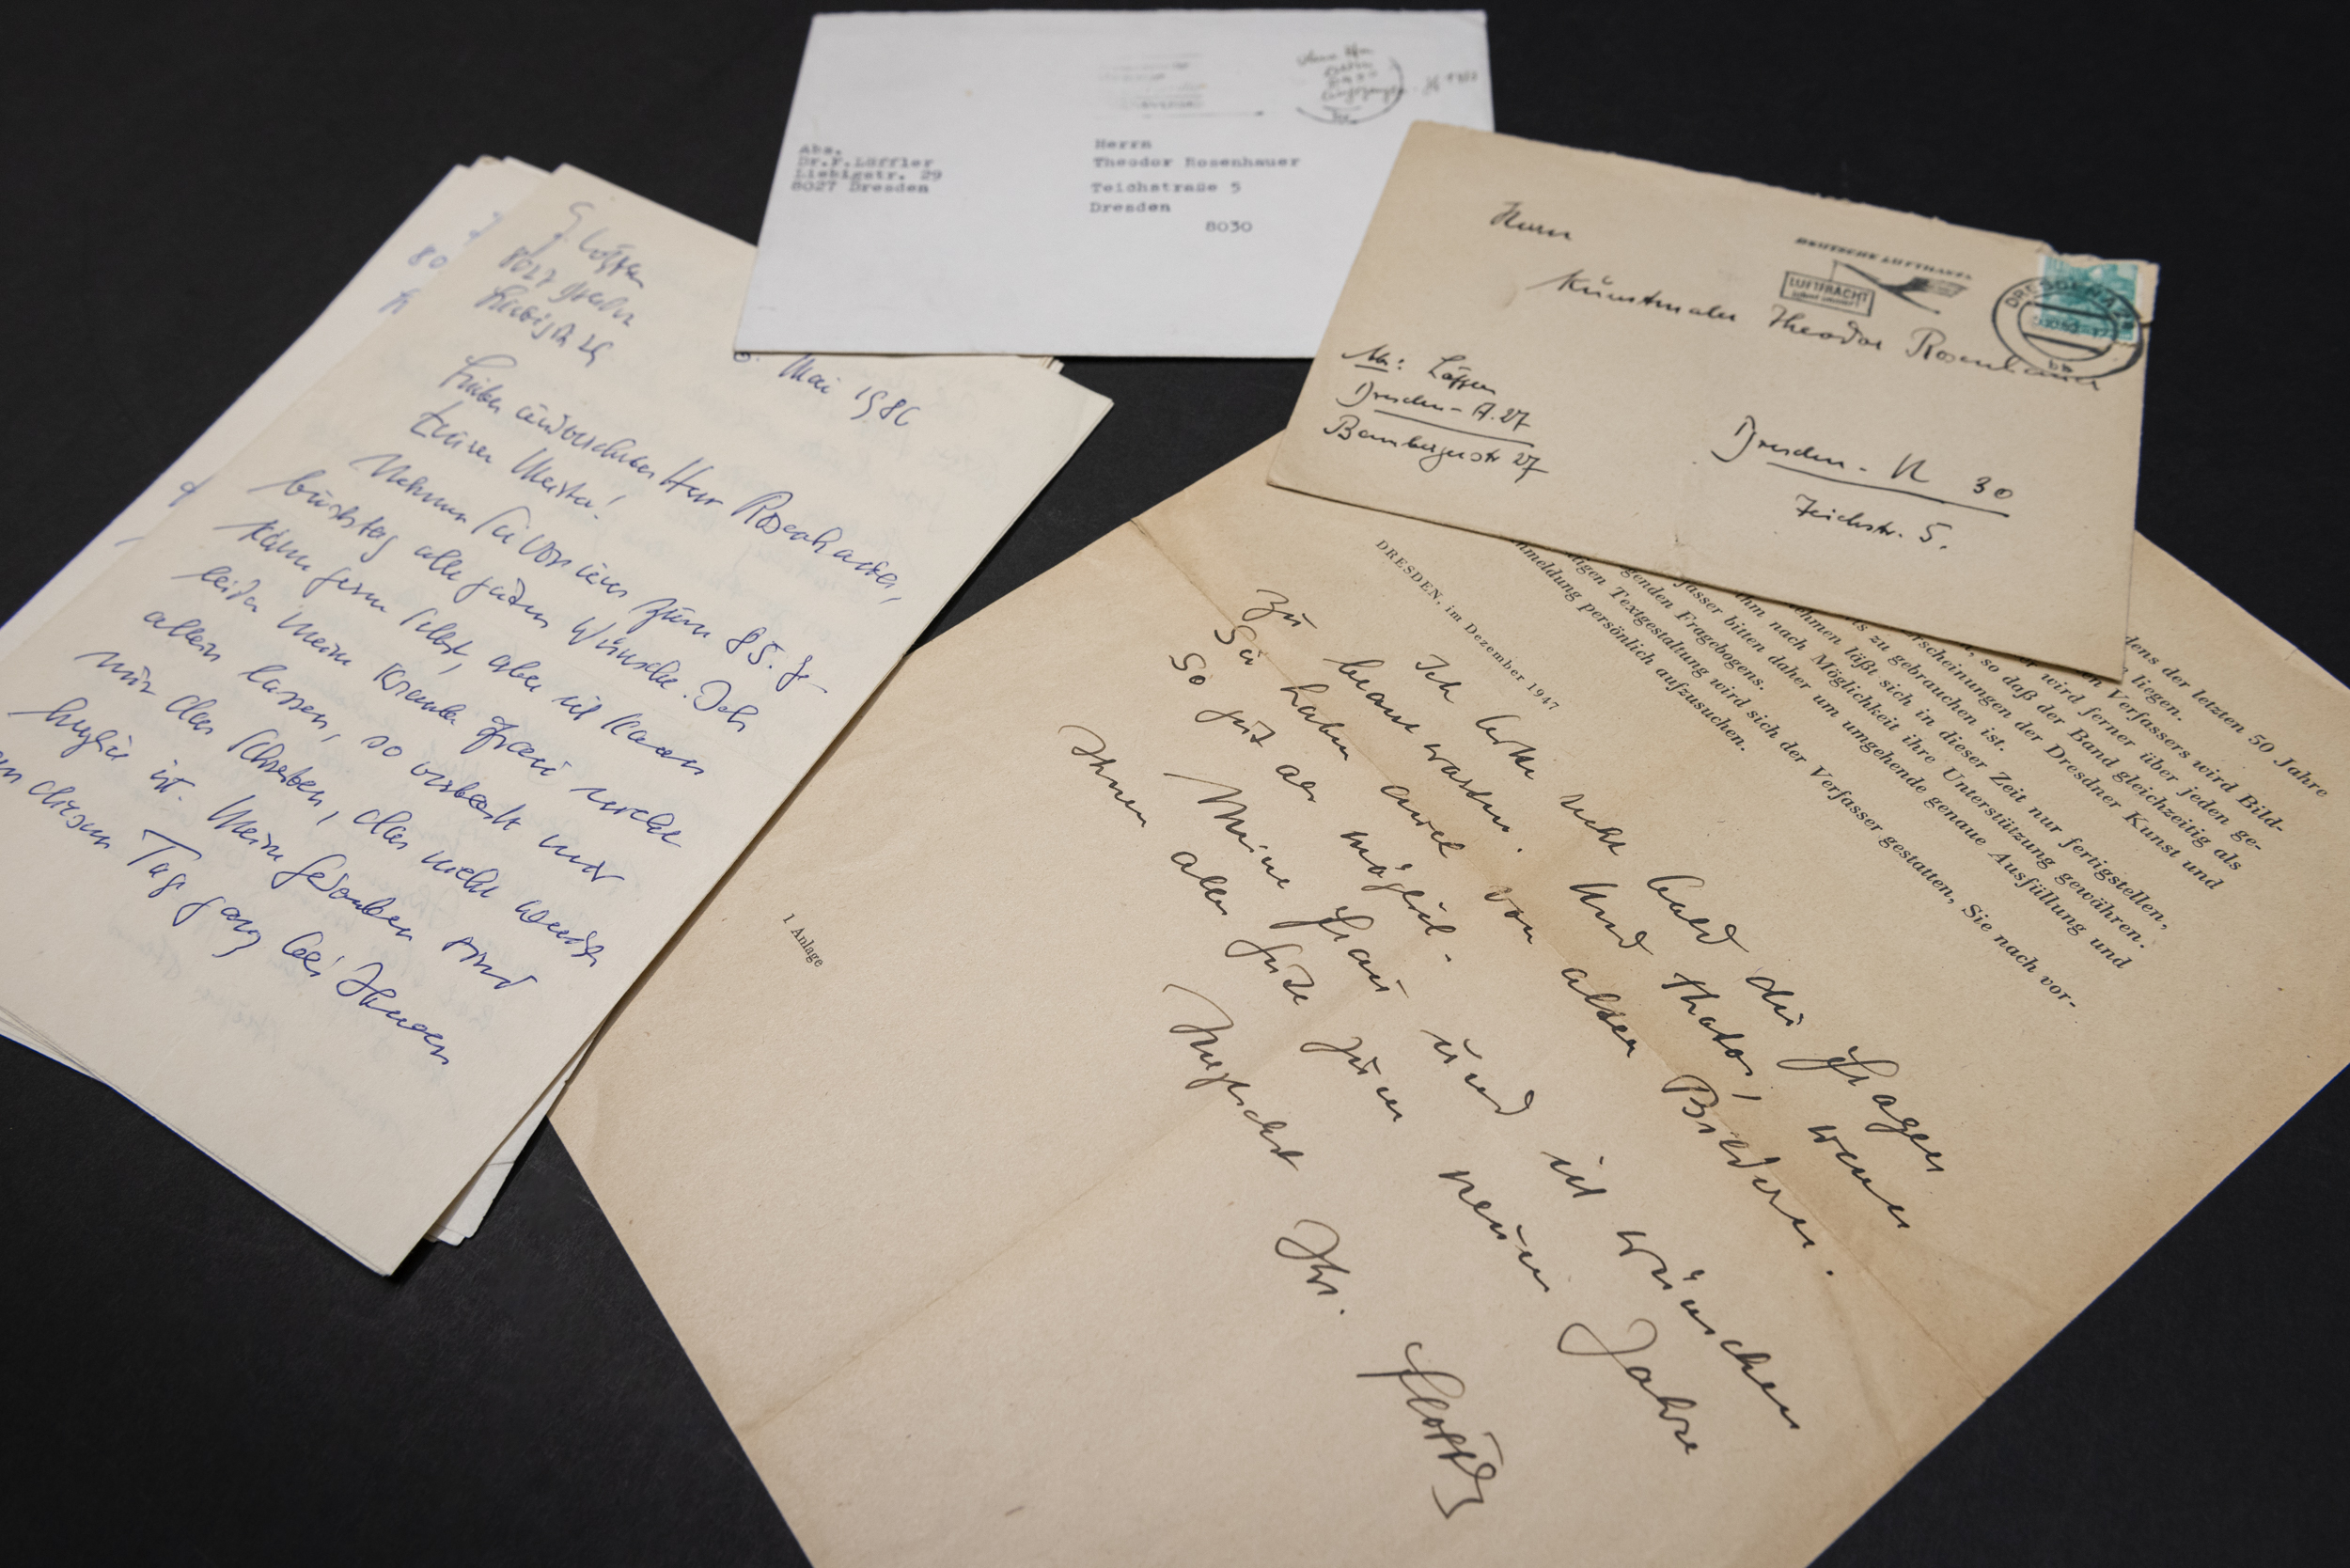 Abs.
Dr.F.Löffler
Liebigstr. 29
8027 Dresden
Herrn
Theodor Rosenhauer
Teichstraße 5
Dresden
8030
Herrn
Kunstmaler Theodor Rosenhauer
Dresden - N 30
Teichstr. 5.
Ab: Löffler
Dresden - A. 27
Bambergerstr 27
DEUTSCHE LUFTHANSA
LUFTFRACHT
DRESDEN
F. Löffler
8027 Dresden
Liebigstr 29
Mai 1986
Lieber und verehrter Herr Rosenhauer,
teurer Meister!
Nehmen Sie von uns zum 85. Ge-
burtstag alle guten Wünsche. Ich
käme gern selbst, aber ich kann
leider meine kranke Frau nicht
allein lassen, so verbleibt mir
nur das Schreiben, das nicht weniger
ist. Meine Gedanken sind
an diesem Tag ganz bei Ihnen
dens der letzten 50 Jahre
liegen.
Verfassers wird Bild-
wird ferner über jeden ge-
, so daß der Band gleichzeitig als
erscheinungen der Dresdner Kunst und
s zu gebrauchen ist.
ehmen läßt sich in dieser Zeit nur fertigstellen,
ihm nach Möglichkeit ihre Unterstützung gewähren.
fasser bitten daher um umgehende genaue Ausfüllung und
genden Fragebogens.
igen Textgestaltung wird sich der Verfasser gestatten, Sie nach vor-
nmeldung persönlich aufzusuchen.
DRESDEN, im Dezember 1947
Ich bitte recht bald die Fragen
zu beantworten. Und Photos, wenn
Sie haben auch von alten Bildern.
So gut als möglich.
Meine Frau und ich wünschen
Ihnen alles Gute zum neuen Jahre
Herzlichst Ihr.
FLöffler
1 Anlage